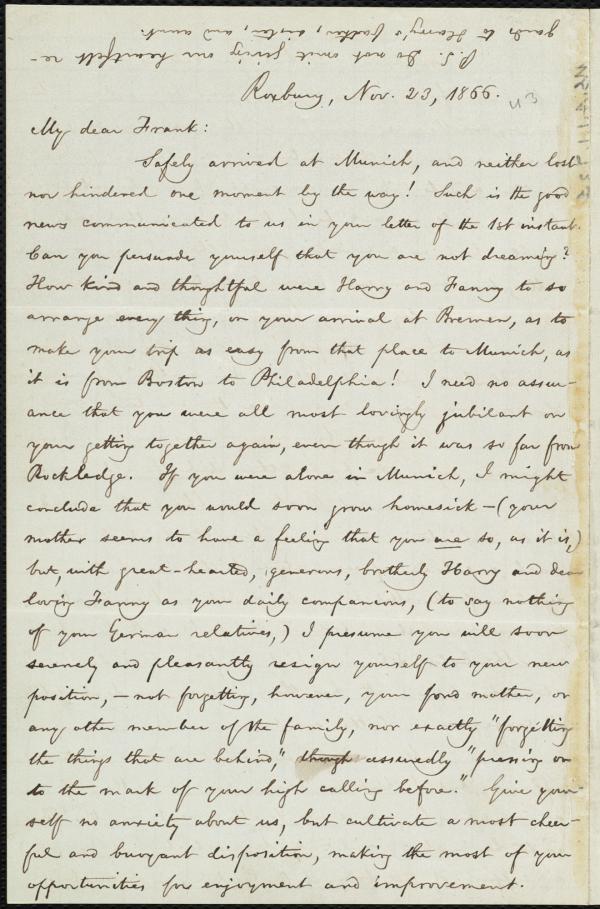 P.S. Do not omit giving our heartfelt re-
gards to Harry's father, sister, and aunt.
Roxbury, Nov. 23, 1866.
My dear Frank:
Safely arrived at Munich, and neither lost
nor hindered one moment by the way! Such is the good
news communicated to us in your letter of the 1st instant.
Can you persuade yourself that you are not dreaming?
How kind and thoughtful were Harry and Fanny to so
arrange every thing, on your arrival at Bremen, as to
make your trip as easy from that place to Munich, as
it is from Boston to Philadelphia! I need no assur-
ance that you were all most lovingly jubilant on
your getting together again, even though it was so far from
Rockledge. If you were alone in Munich, I might
conclude that you would soon grow homesick—(your
mother seems to have a feeling that you are so, as it is,)
but, with great-hearted, generous, brotherly Harry and dear
loving Fanny as your daily companions, (to say nothing
of your German relatives,) I presume you will soon
serenely and pleasantly resign yourself to your new
position,—not forgetting, however, your fond mother, or
any other member of the family, nor exactly "forgetting
the things that are behind," though assuredly "pressing on
to the mark of your high calling before." Give your-
self no anxiety about us, but cultivate a most cheer-
ful and buoyant disposition, making the most of your
opportunities for enjoyment and improvement.